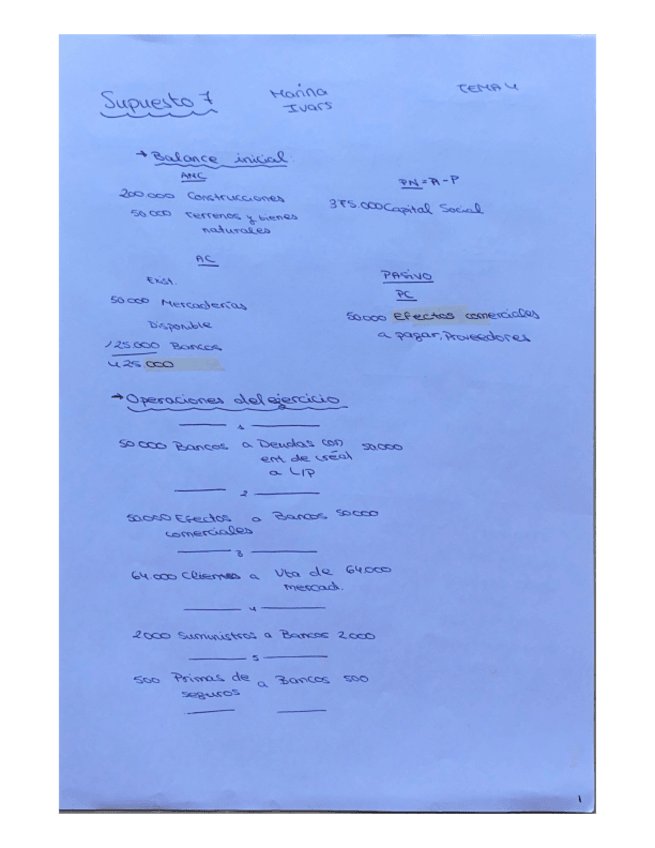 Supuesto 7
Marina
Ivars
TEMA 4
→ Balance inicial
ANC
200.000 Construcciones
50.000 Terrenos y bienes
naturales
PN = A - P
375.000 Capital Social
AC
Exist.
50.000 Mercaderías
Disponible
125.000 Bancos
425.000
PASIVO
PC
50.000 Efectos comerciales
a pagar, Proveedores
→ Operaciones del ejercicio
1
50.000 Bancos a Deudas con 50.000
ent. de créd
a L/P
2
50.000 Efectos a Bancos 50.000
comerciales
3
64.000 Clientes a Vta de 64.000
mercad.
4
2000 Suministros a Bancos 2000
5
500 Primas de a Bancos 500
seguros
1